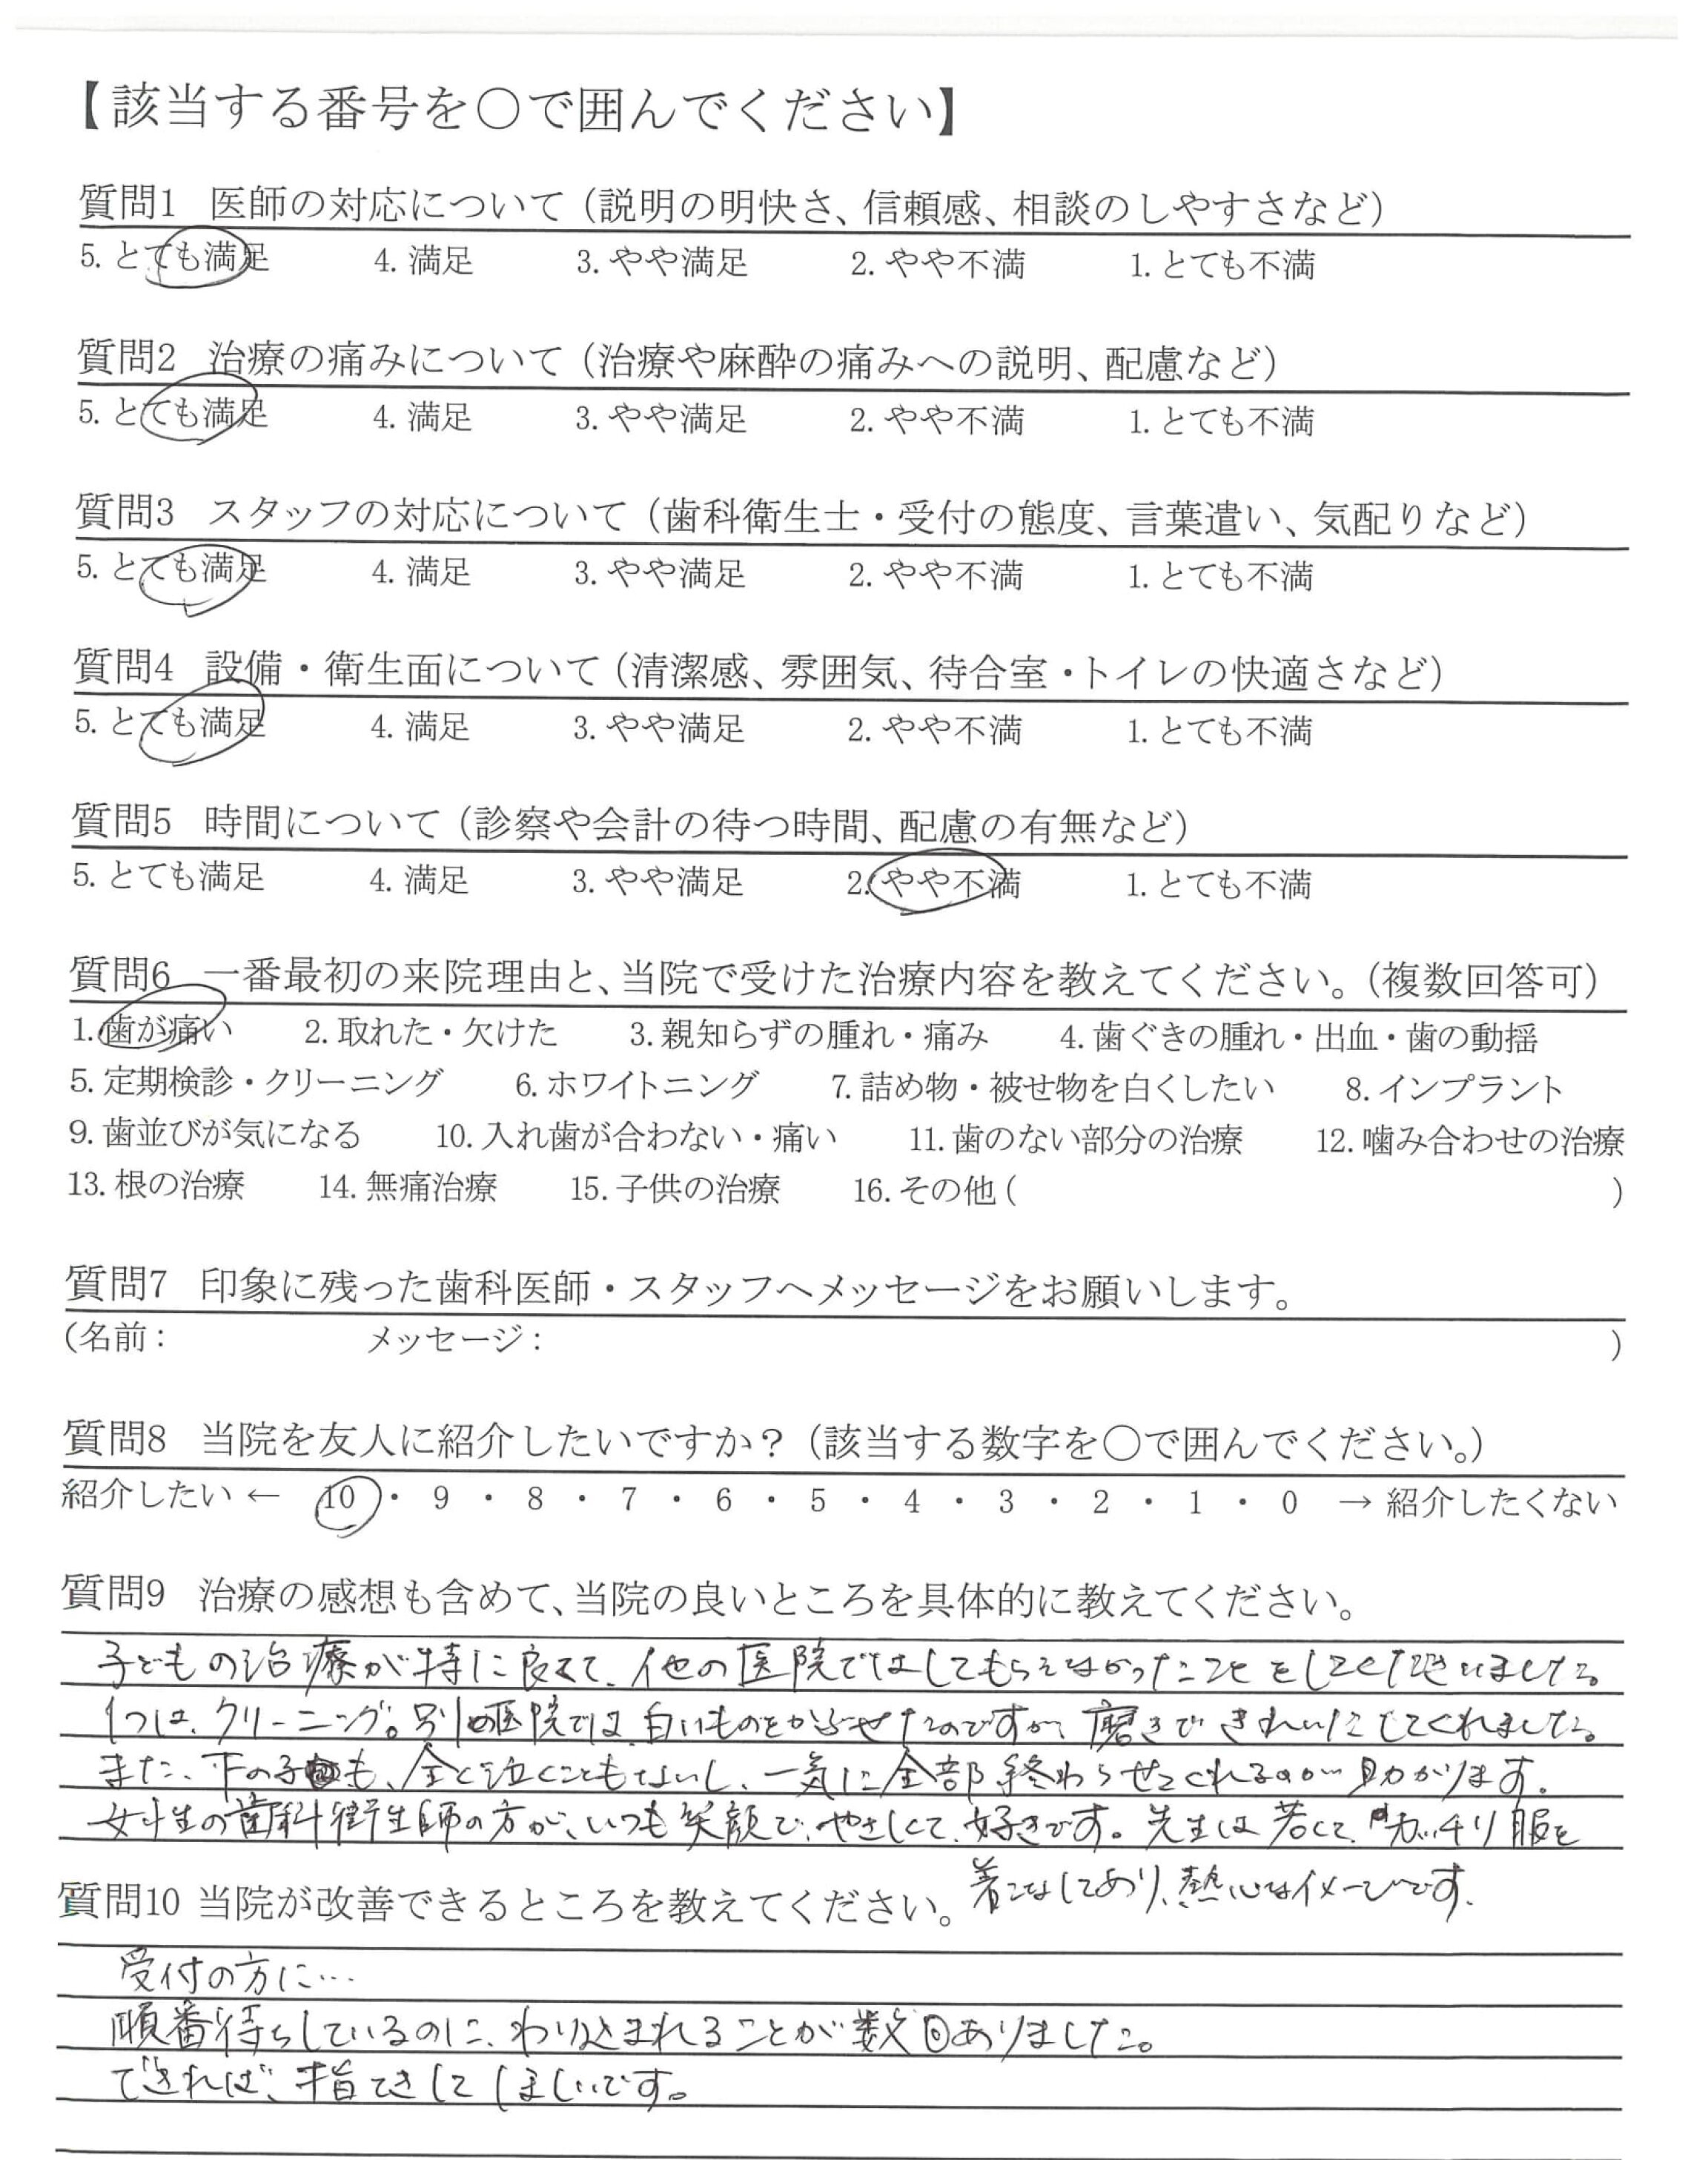 【該当する番号を○で囲んでください】
質問1 医師の対応について（説明の明快さ、信頼感、相談のしやすさなど）
5. とても満足 4. 満足 3. やや満足 2. やや不満 1. とても不満
質問2 治療の痛みについて（治療や麻酔の痛みへの説明、配慮など）
5. とても満足 4. 満足 3. やや満足 2. やや不満 1. とても不満
質問3 スタッフの対応について（歯科衛生士・受付の態度、言葉遣い、気配りなど）
5. とても満足 4. 満足 3. やや満足 2. やや不満 1. とても不満
質問4 設備・衛生面について（清潔感、雰囲気、待合室・トイレの快適さなど）
5. とても満足 4. 満足 3. やや満足 2. やや不満 1. とても不満
質問5 時間について（診察や会計の待つ時間、配慮の有無など）
5. とても満足 4. 満足 3. やや満足 2. やや不満 1. とても不満
質問6 一番最初の来院理由と、当院で受けた治療内容を教えてください。（複数回答可）
1. 歯が痛い 2. 取れた・欠けた 3. 親知らずの腫れ・痛み 4. 歯ぐきの腫れ・出血・歯の動揺
5. 定期検診・クリーニング 6. ホワイトニング 7. 詰め物・被せ物を白くしたい 8. インプラント
9. 歯並びが気になる 10. 入れ歯が合わない・痛い 11. 歯のない部分の治療 12. 噛み合わせの治療
13. 根の治療 14. 無痛治療 15. 子供の治療 16. その他（ ）
質問7 印象に残った歯科医師・スタッフへメッセージをお願いします。
（名前： メッセージ： ）
質問8 当院を友人に紹介したいですか？（該当する数字を○で囲んでください。）
紹介したい ← 10 ・ 9 ・ 8 ・ 7 ・ 6 ・ 5 ・ 4 ・ 3 ・ 2 ・ 1 ・ 0 → 紹介したくない
質問9 治療の感想も含めて、当院の良いところを具体的に教えてください。
子どもの治療が特に良くて、他の医院ではしてもらえなかったことをしてくださいました。
1つは、クリーニング。別の医院では、白いものをかぶせたのですが、磨きできれいにしてくれました。
また、下の子も、全く泣くこともないし、一気に全部終わらせてくれるのが助かります。
女性の歯科衛生師の方が、いつも笑顔で、やさしくて、好きです。先生は若くて、カッチリ服を
着こなしてあり、熱心なイメージです。
質問10 当院が改善できるところを教えてください。
受付の方に…
順番待ちしているのに、わり込まれることが数回ありました。
できれば、指てきしてほしいです。